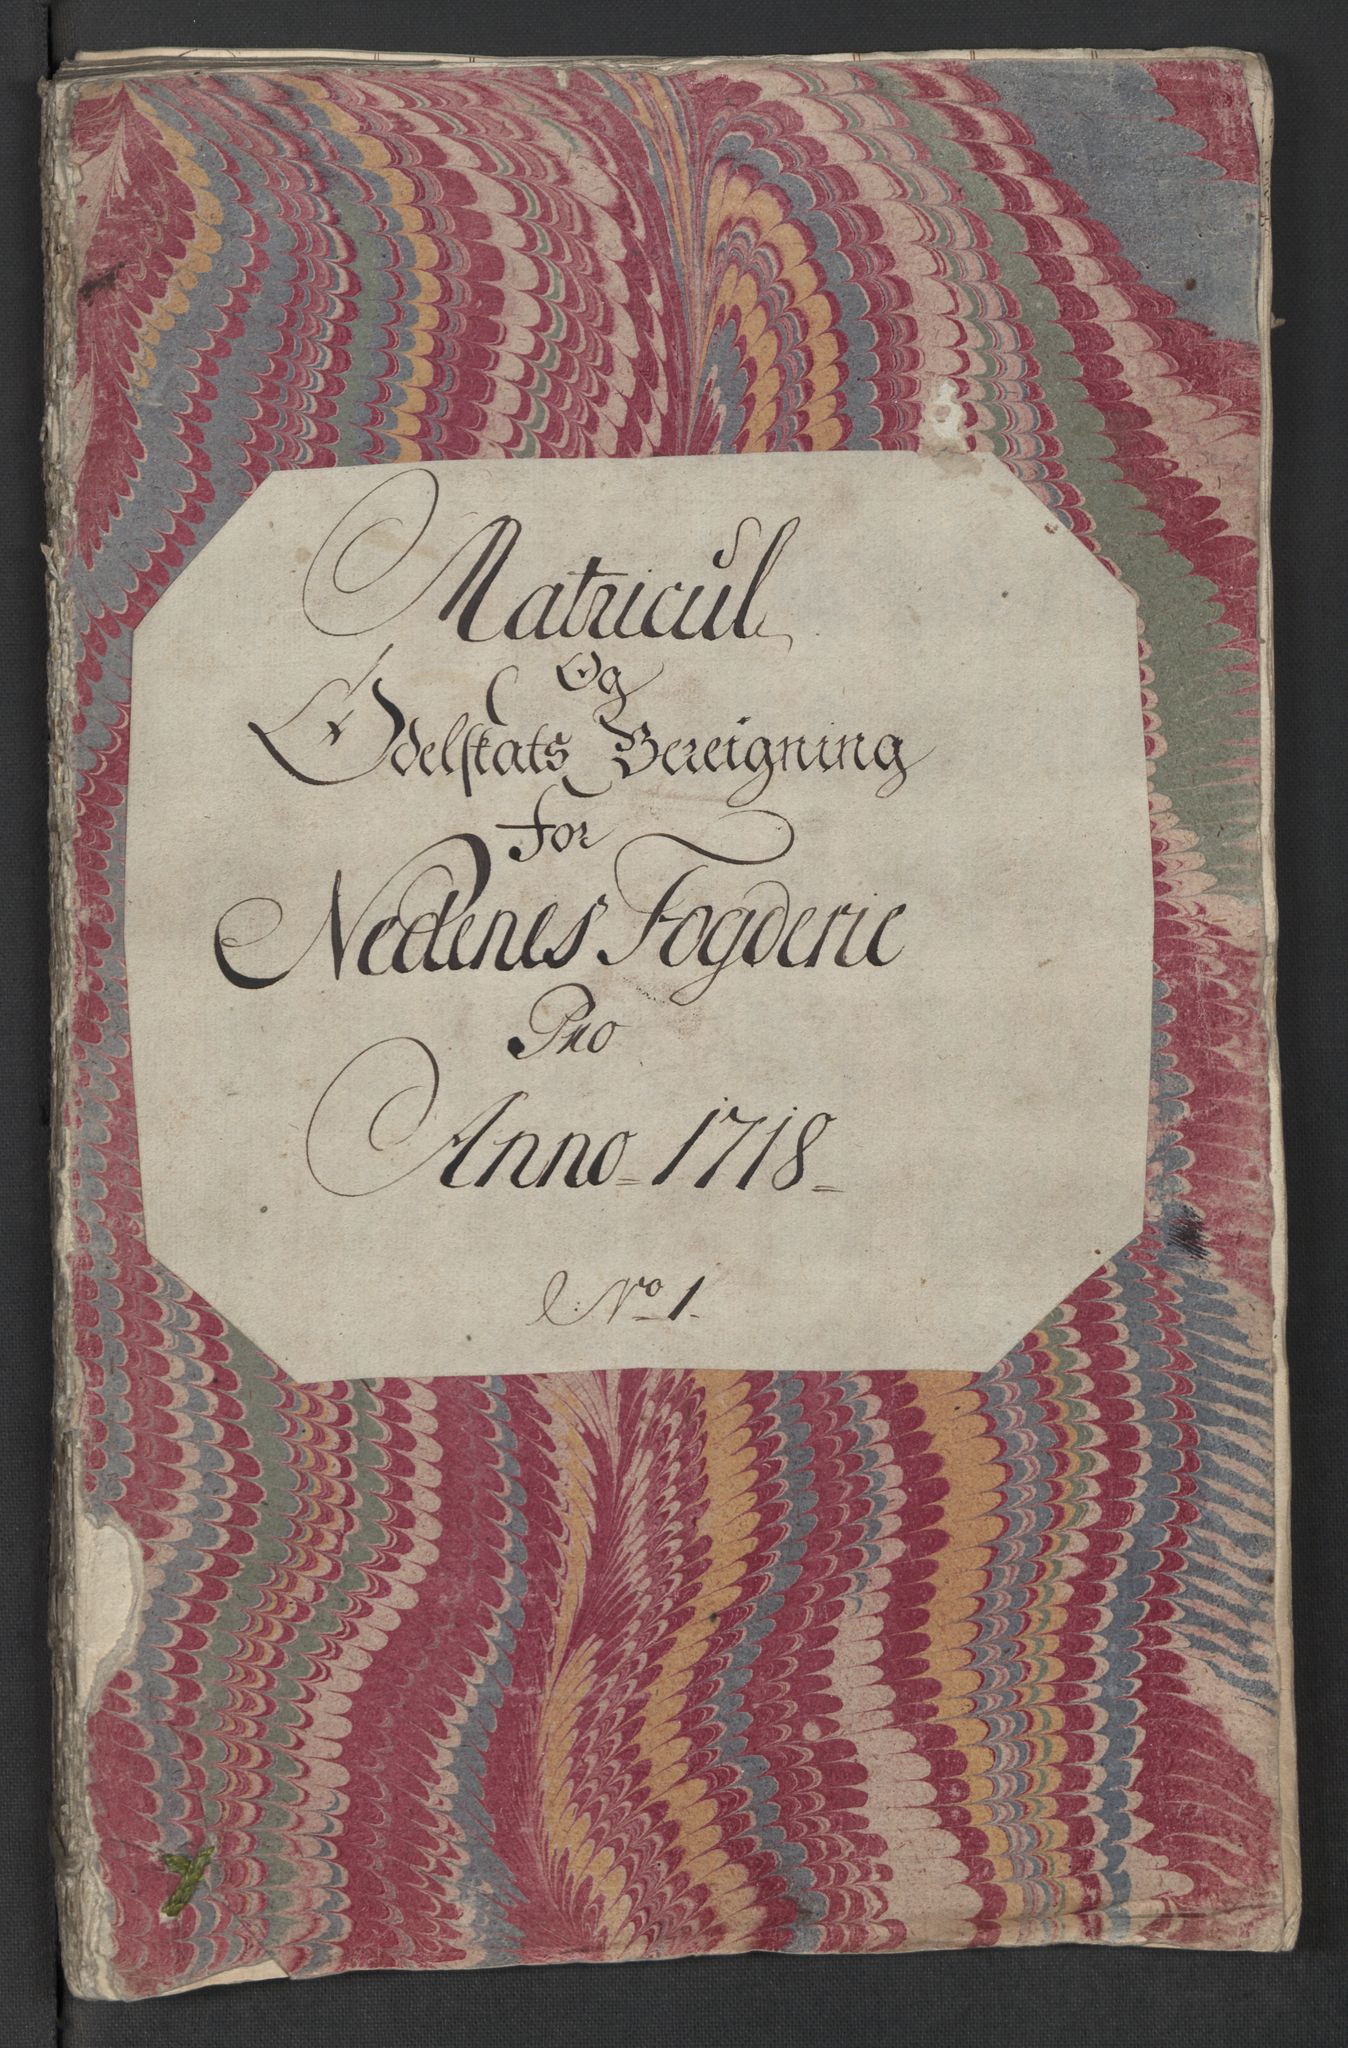 Matricul
Og
Odelskats Bereigning
For
Nedenes Fogderie
Pro
Anno 1718
No 1